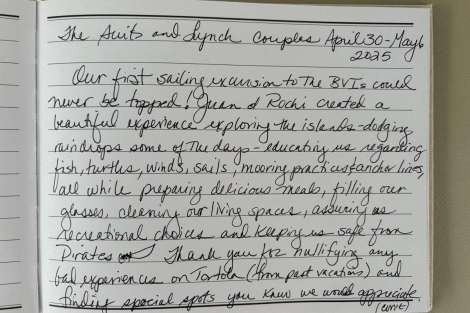 The Suits and Lynch couples April 30-May 6
2025
Our first sailing excursion to The BVIs could
never be topped! Juan & Rochi created a
beautiful experience exploring the islands-dodging
raindrops some of The days - educating us regarding
fish, turtles, winds, sails, mooring practices & anchor lines,
all while preparing delicious meals, filling our
glasses, cleaning our living spaces, assuring us
recreational choices and keeping us safe from
Pirates Thank you for nullifying any
bad experiences on Tortola (from past vacations) and
finding special spots you knew we would appreciate